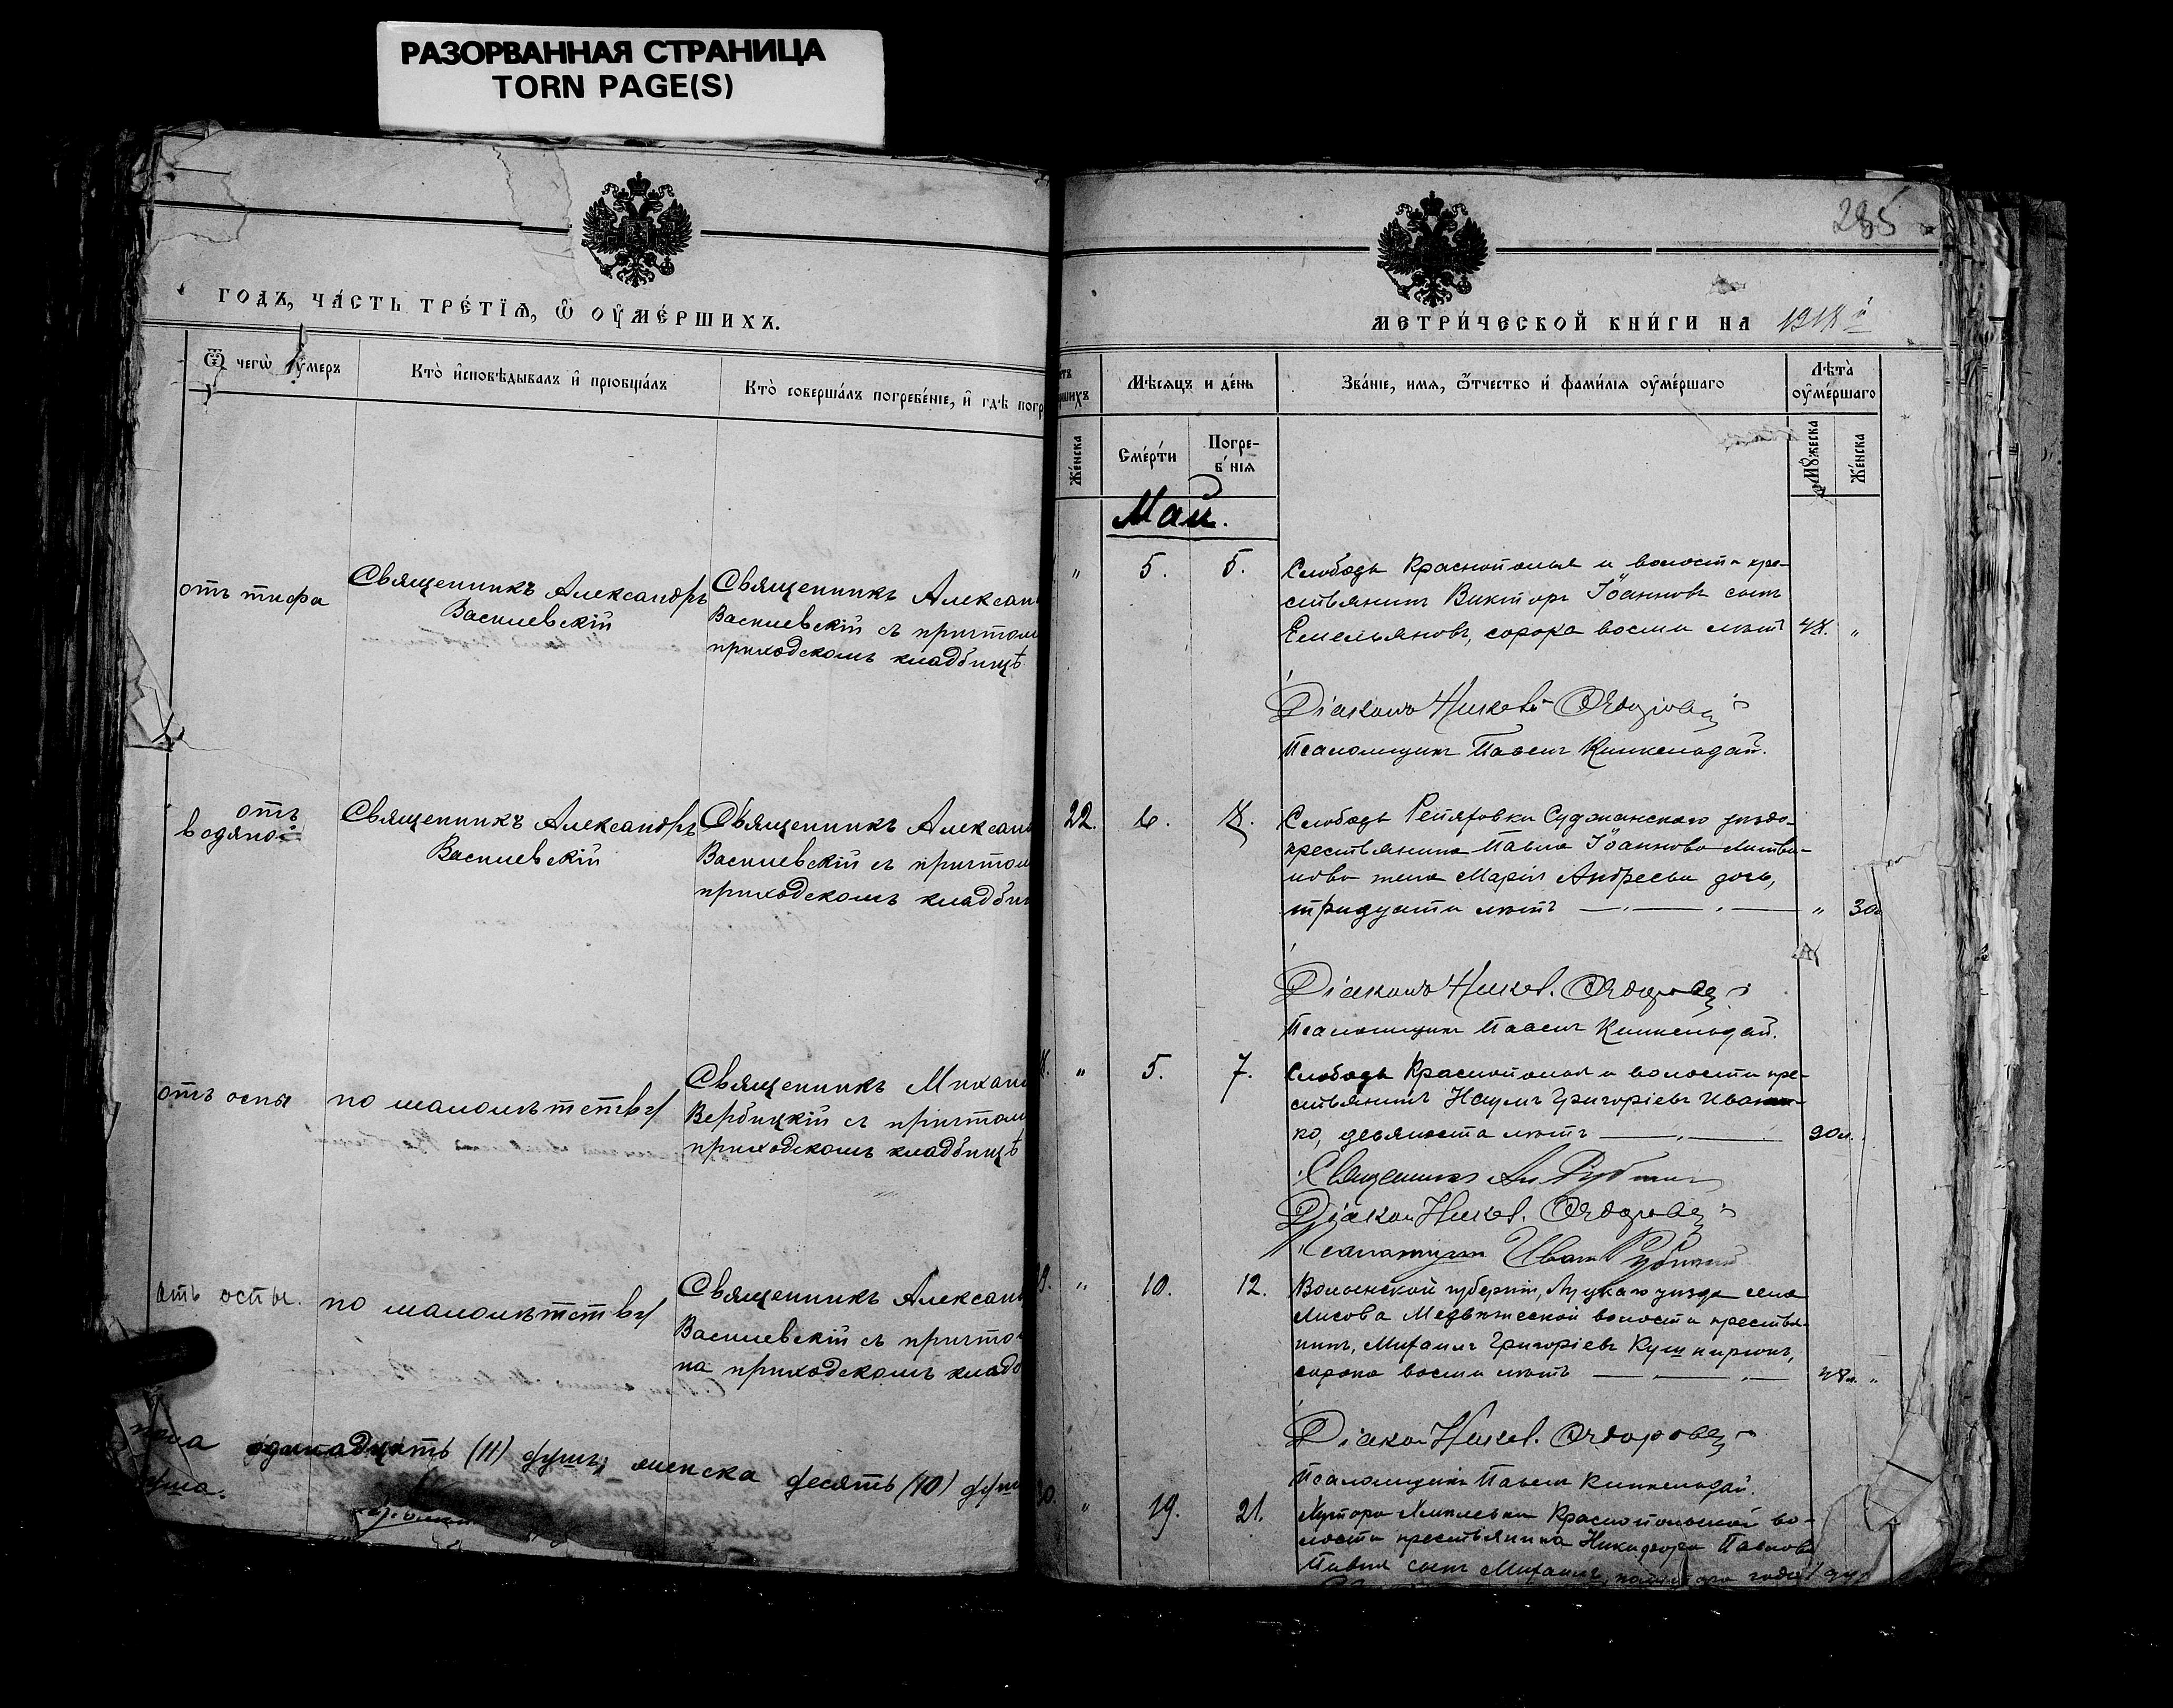 РАЗОРВАННАЯ СТРАНИЦА
TORN PAGE(S)
годъ, часть третїѧ, ѡ оумершихъ.
Ѿ чегѡ оумеръ
Кто исповѣдывалъ и прїобщалъ
Кто совершалъ погребенїе, и гдѣ погр
отъ тифа
Священникъ Александръ
Василевскій
Священникъ Алексан
Василевскій съ причтом
приходскомъ кладбищѣ
отъ
водяной
Священникъ Александръ
Василевскій
Священникъ Алексан
Василевскій съ причтом
приходскомъ кладби
отъ оспы
по малолѣтству
Священникъ Михаи
Вербицкій съ причтом
приходскомъ кладбищѣ
отъ оспы.
по малолѣтству
Священникъ Алексан
Василевскій съ причто
на приходскомъ кладб
одинадцать (11) душъ, женска десять (10) душ
285
метрической книги на 1918 й
Женска
Мѣсѧцъ и день
Смерти
Погре-
б нїѧ
Званїе, имѧ, ѿчество и фамилїѧ оумершаго
Лѣта
оумершаго
Мужеска
Женска
Май.
" 5. 5. Слободы Краснополья и волости кре-
стьянинъ Викторъ Іоанновъ сынъ
Емельяновъ, сорока восьми лѣтъ 48. "
Діаконъ Никол.
Псаломщикъ Павелъ
22. 6. 8. Слободы Репяховки Суджанскаго уѣзда
крестьянина Павла Іоаннова Литви-
нова жена Марія Андреева дочь,
тридцати лѣтъ " 30
Діаконъ Никол.
Псаломщикъ Павелъ
" 5. 7. Слободы Краснополья и волости кре-
стьянинъ Наумъ Григоріевъ Иванен-
ко, девяноста лѣтъ 90л.
Священникъ
Діакон Никол.
Псаломщикъ Иван
9. " 10. 12. Волынской губерніи, Луцкаго уѣзда села
Лисова Медвѣжской волости крестья-
нинъ, Михаилъ Григоріевъ
сорока восьми лѣтъ 48л. "
Діакон Никол.
Псаломщикъ Павелъ
30. " 19. 21. Хутора Краснопольской во-
лости крестьянина Никифора Павлова
сынъ Михаилъ,